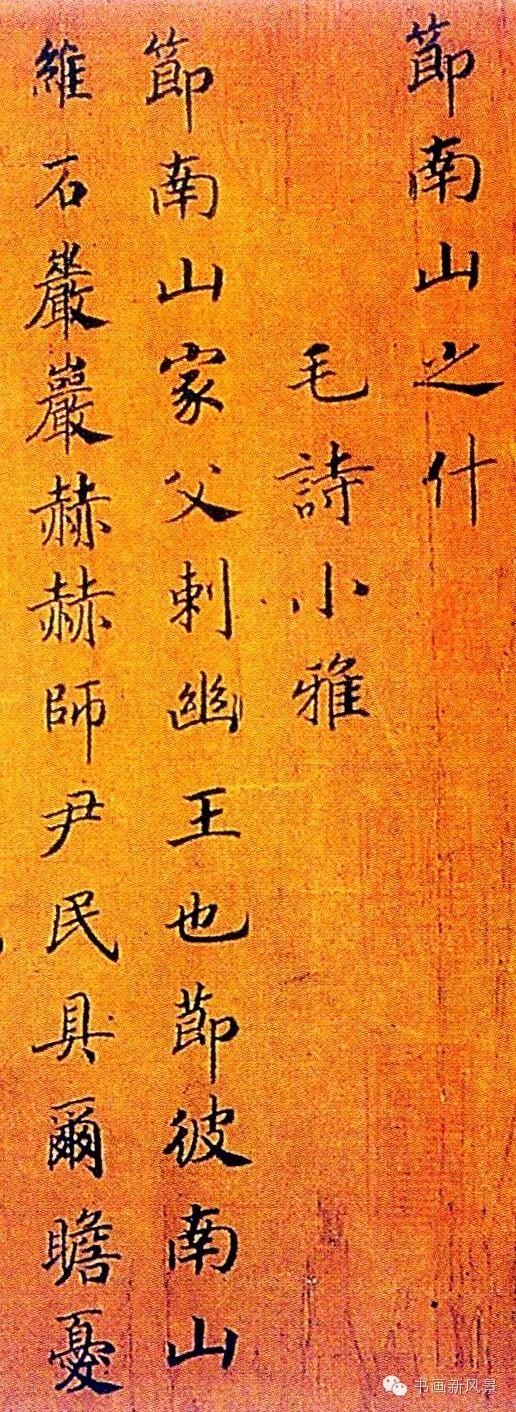 節南山之什
毛詩小雅
節南山家父刺幽王也節彼南山
維石巖巖赫赫師尹民具爾瞻憂
书画新风景